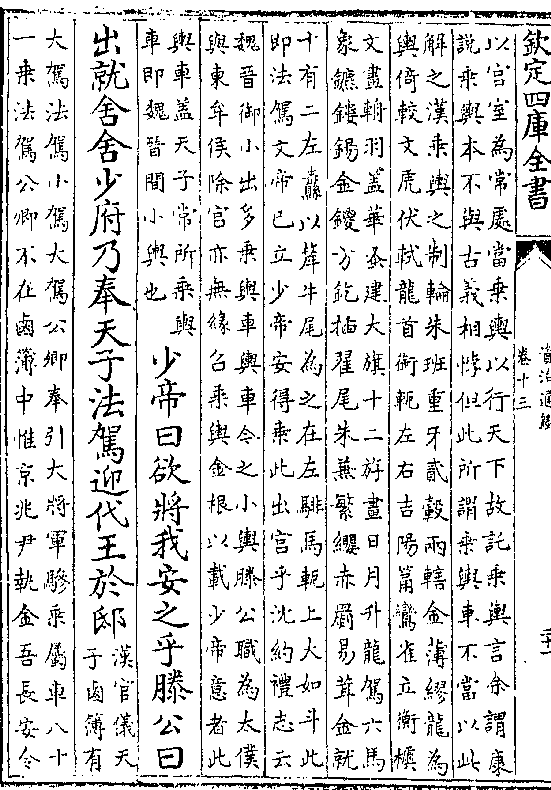 欽定四庫全書
資治通鑑
卷十三
以宫室為常處當乗輿以行天下故託乗輿言余謂康
說乗輿本不與古義相悖但此所謂乗輿車不當以此
解之漢乗輿之制輪朱班重牙貳轂兩轄金薄繆龍為
輿倚較文虎伏軾龍首銜軛左右吉陽筩鸞雀立衡櫎
文畫輈羽蓋華蚤建大旗十二斿畫日月升龍駕六馬
象鑣鏤鍚金鍐方釳揷翟尾朱兼繁纓赤罽易茸金就
十有二左纛以犛牛尾為之在左騑馬軛上大如斗此
即法駕文帝已立少帝安得乗此出宫乎沈約禮志云
魏晉御小出多乗輿車輿車今之小輿滕公職為太僕
與東牟侯除宫亦無緣召乗輿金根以載少帝意者此
輿車蓋天子常所乗輿
車即魏晉間小輿也
少帝曰欲將我安之乎滕公曰
出就舍舍少府乃奉天子法駕迎代王於邸
漢官儀天
子鹵簿有
大駕法駕小駕大駕公卿奉引大將軍驂乗屬車八十
一乗法駕公卿不在鹵簿中惟京兆尹執金吾長安令